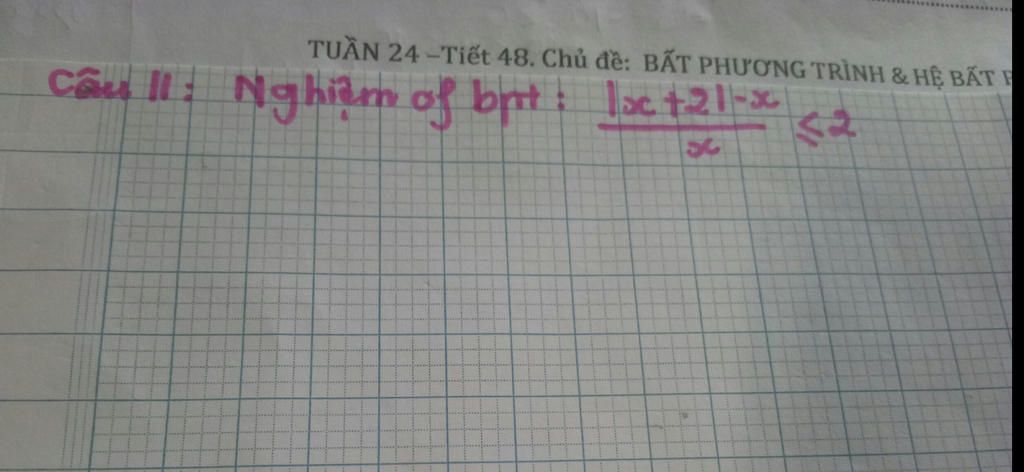 TUẦN 24 –Tiết 48. Chủ đề: BẤT PHƯƠNG TRÌNH & HỆ BẤT
Câu 11: Nghiệm of bpt: |x+2|-x / x ≤ 2